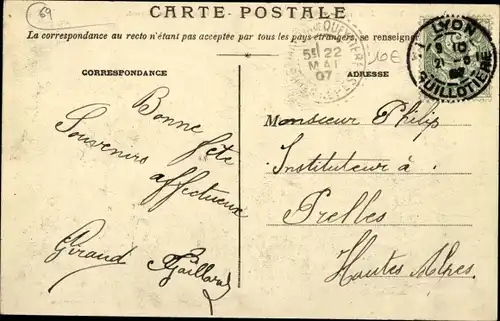 69
CARTE POSTALE
La correspondance au recto n'étant pas acceptée par tous les pays étrangers, se renseigner
10E
LYON
GUILLOTIÈRE
22
MAI
07
CORRESPONDANCE
ADRESSE
Bonne fête
Souvenirs affectueux
Giraud Gaillard
Monsieur Philip
Instituteur à
Prelles
Hautes Alpes